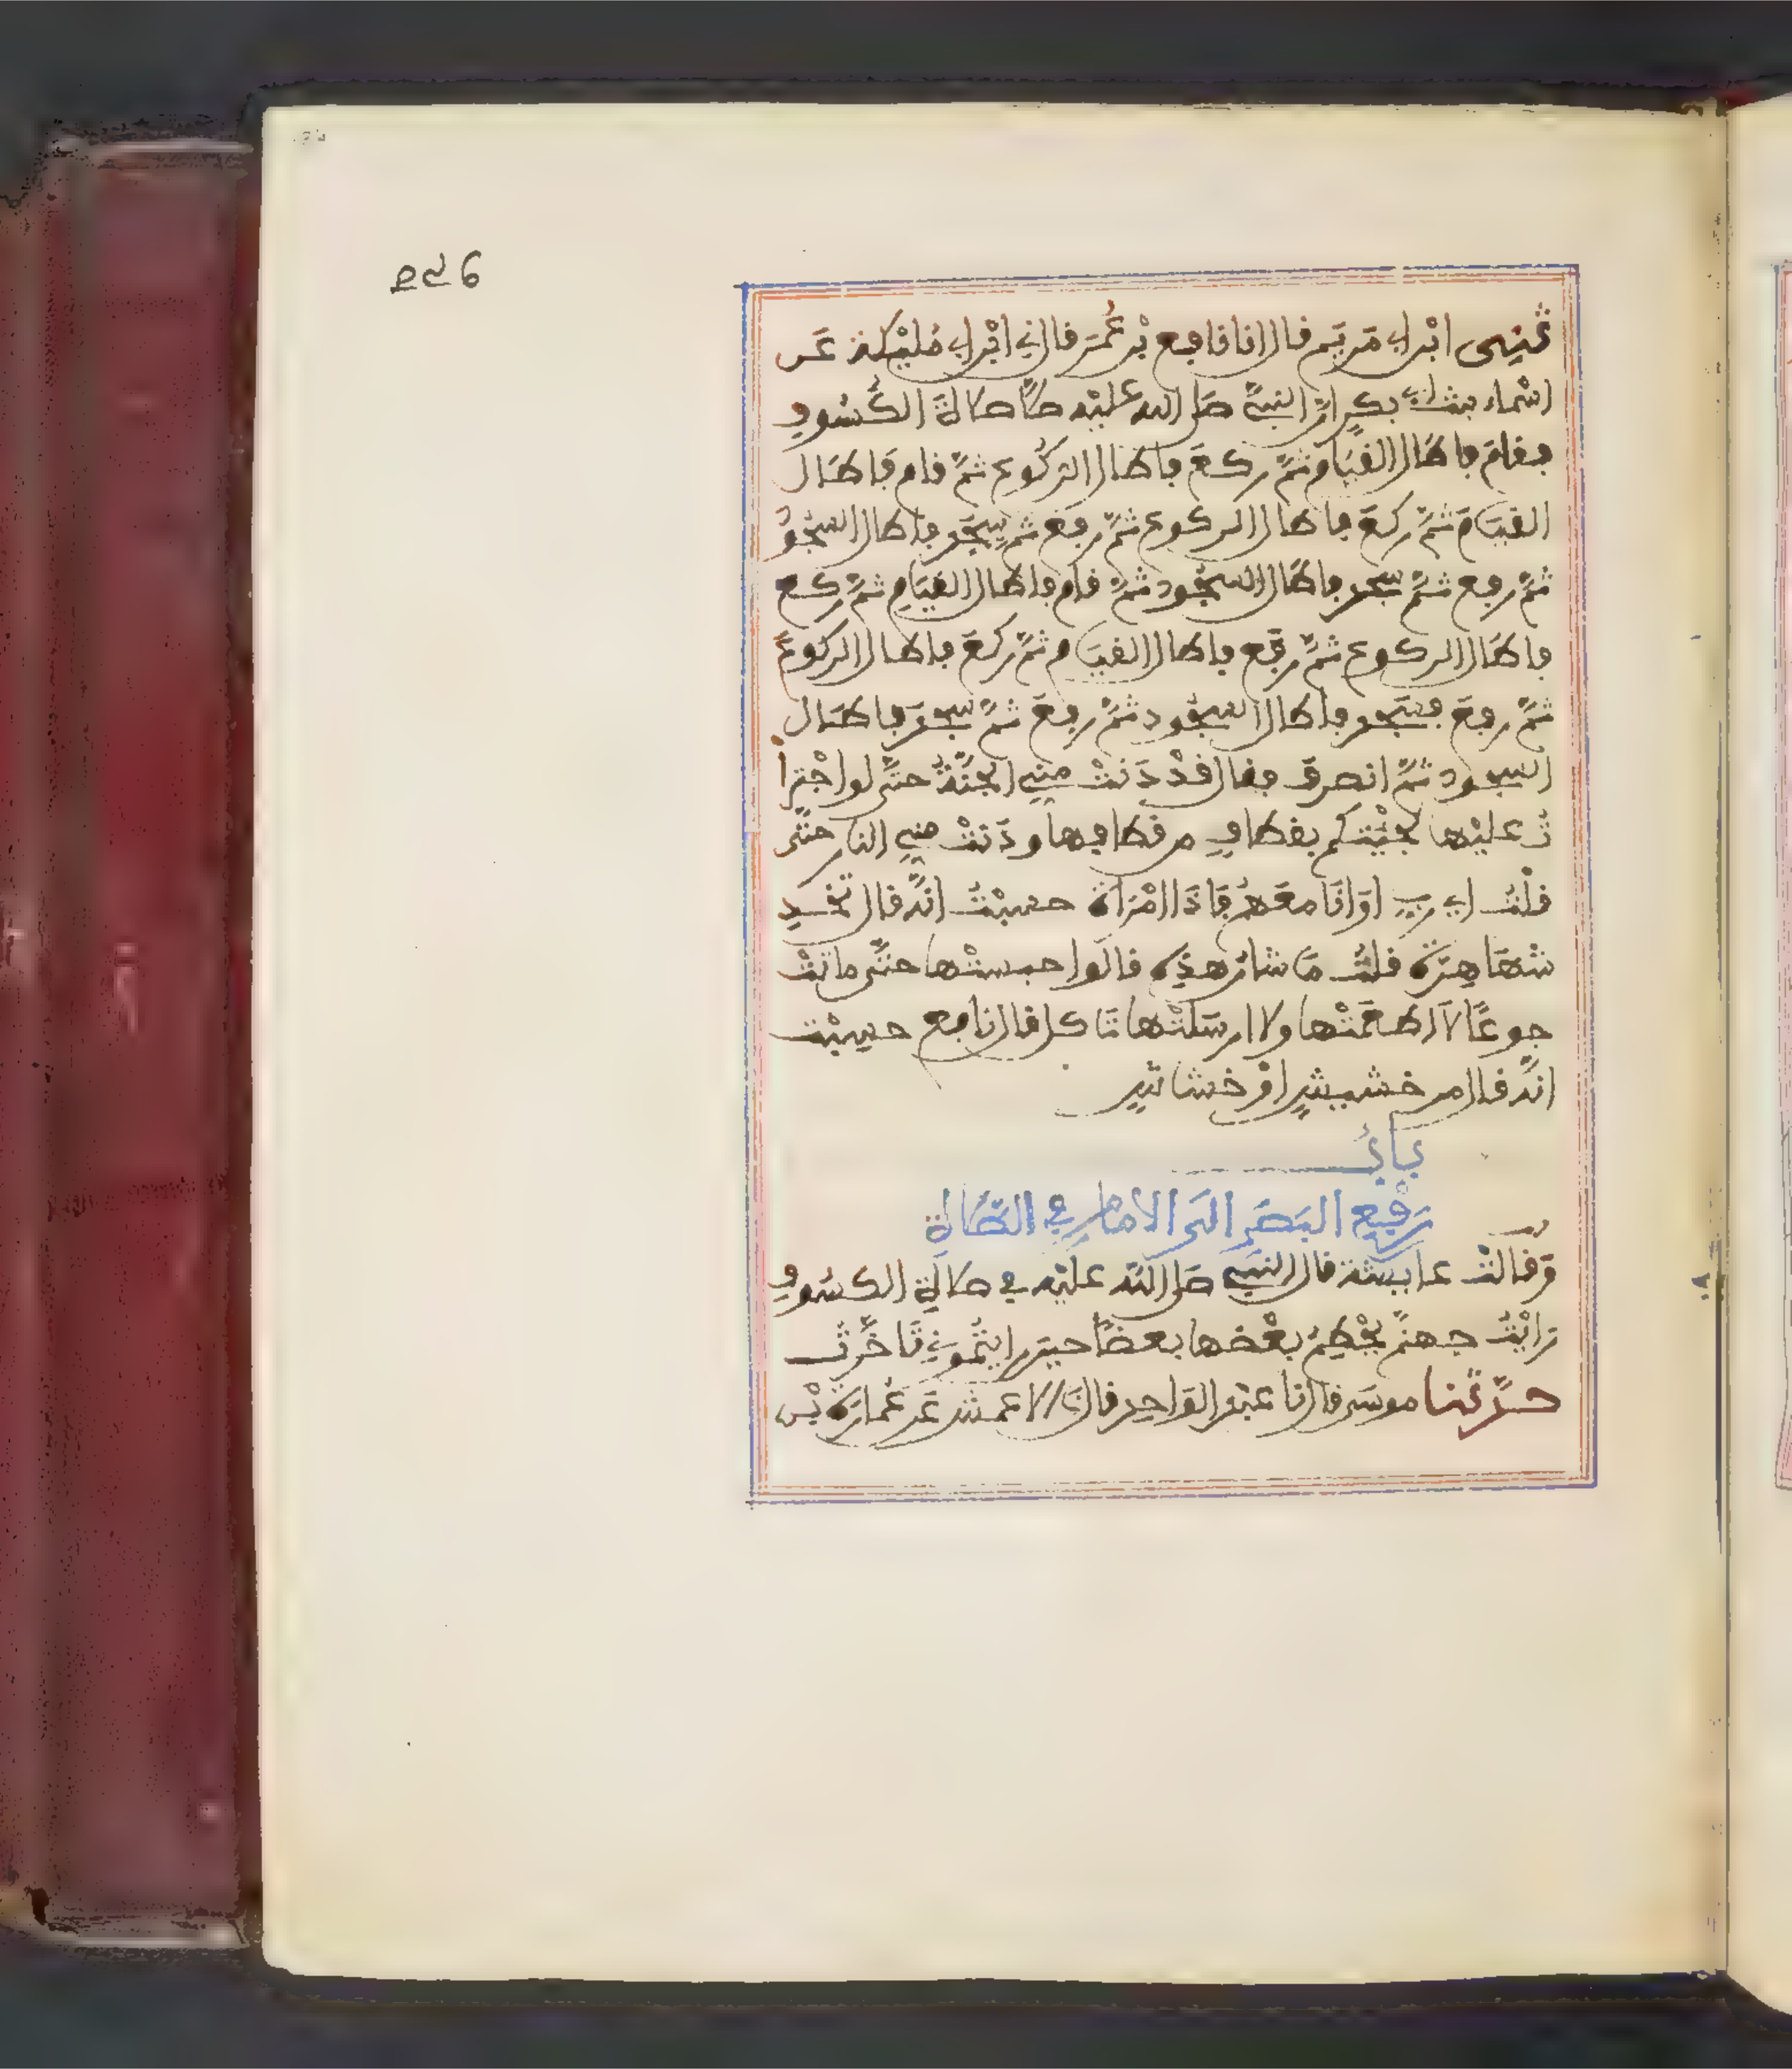 ثنى ابن ابي مريم قال انا نافع بْن عُمَر قال ني ابْن ابي مُلَيْكة عَن
اسْماء بنت ابي بكر انّ النبيَّ صلى الله عليْه صلَّى صلاةَ الكُسُوف
فقامَ فاطَال القيَامَ ثمَّ ركعَ فاطَال الركُوع ثمَّ قام فَاطَال
القيَامَ ثمَّ ركعَ فاطال الركوع ثمَّ رفعَ ثمّ سجَد فاطال السجُو
ثمَّ رفع ثمَّ سجد فاطَال السجُود ثمَّ قام فاطال القيَام ثمَّ ركع
فاطَال الركوع ثمَّ رفَع فاطال القيَام ثمَّ ركعَ فاطال الركوعَ
ثمَّ رفعَ فسَجد فاطال السجُود ثمَّ رفعَ ثمَّ سجدَ فاطَال
السجود ثمَّ انصرفَ فقال قدْ دَنتْ مني الجنَّةُ حتَّى لو اجْترأ
تُ عليْها لجئْتكم بقطاف من قطافها ودَنتْ مني النار حتَّى
قلْتُ اي رب اوَانَا معَهمْ فَاذَا امْرَاة حسبْتُ انَّه قال تخد
شهَا هِرّة قلتُ مَا شان هذِه قالوا حبستْها حتَّى ماتتْ
جوعًا لا اطعَمَتْها ولا ارسَلتْها تَاكل قال نافع حسِبْت
انَّه قال من خشيشِ اوْ خشاش
بابُ
رَفْعِ البَصَرِ الَى الامامِ في الصَّلاةِ
وَقالتْ عايشة قال النَّبي صلى اللّه عليْه في صلاةِ الكسُوفِ
رَايْتُ جهنَّم يَحْطِمُ بعْضها بعضًا حين رايتُمونِي تَاخَّرتُ
حدَّثنا موسَى قال نا عبْد الوَاحِد قال نا الاعمش عَن عُمارَة بْن